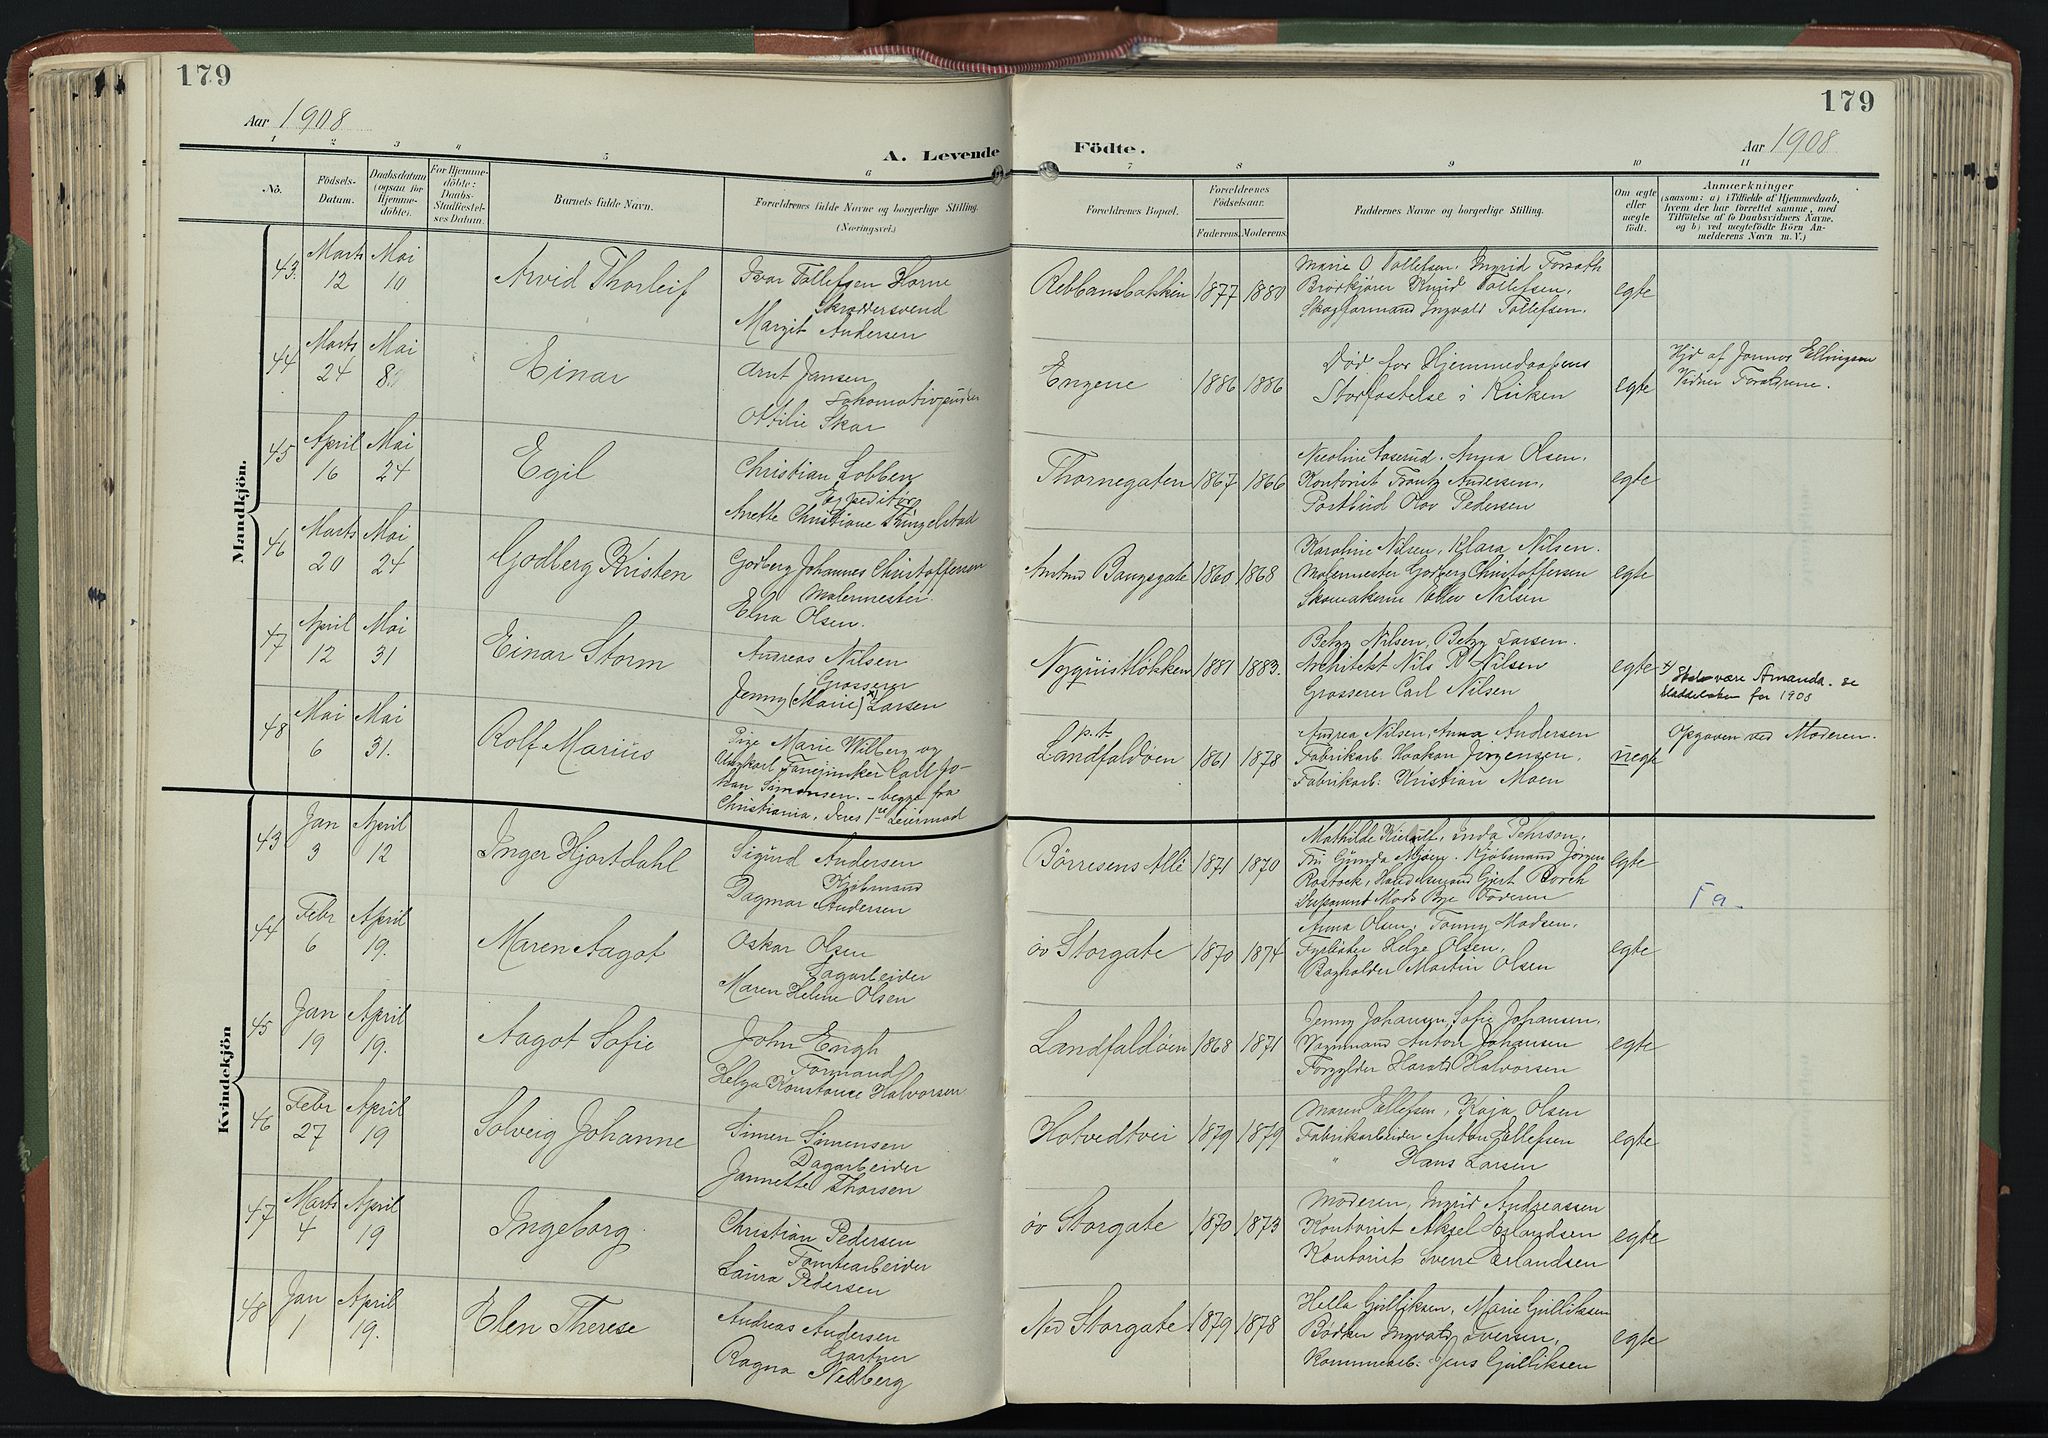 179
Aar 1908
A. Levende
1 2 3 4 5 6
No.
Födsels-
Datum.
Daabsdatum
(ogsaa for
Hjemme-
döbte).
For Hjemme-
döbte:
Daabs-
Stadfæstel-
ses Datum.
Barnets fulde Navn.
Forældrenes fulde Navne og borgerlige Stilling.
(Næringsvei.)
Mandkjön.
43. Marts 12 Mai 10 Arvid Thorleif
Ivar Tollefsen Horne
Skræddersvend
Margit Andersen
44 Marts 24 Mai 8 Einar
Arnt Jansen
Ottilie Skar
45 April 16 Mai 24 Egil
Christian Lobben
Expeditør
Anette Christiane Tingelstad
46 Marts 20 Mai 24 Godberg Kristen
Godberg Johannes Christoffersen
Malermester.
Elna Olsen.
47 April 12 Mai 31 Einar Storm
Andreas Nilsen
Grosserer
Jenny (Marie) x) Larsen
48 Mai 6 Mai 31. Rolf Marius
Pige Marie Wilberg og
Ungkarl Carl Jo-
han Simonsen. – begge fra
Christiania, deres 1ste Leiermaal
Kvindekjön
43 Jan 3 April 12 Inger Hjortdahl
Sigurd Andersen
Kjøbmand
Dagmar Andersen
44 Febr 6 April 19. Maren Aagot
Oskar Olsen
Sagarbeider
Maren Helene Olsen
45 Jan 19 April 19. Aagot Sofie
John Engh
Formand
Helga Konstance Halvorsen
46 Febr 27 April 19 Solveig Johanne
Simen Simensen
Dagarbeider
Jannette Thorsen
47 Marts 4 April 19 Ingeborg
Christian Pedersen
Tomtearbeider
Laura Pedersen
48 Jan 1 April 19. Elen Therese
Andreas Andersen
Gartner
Ragna Nedberg
179
Födte.
Aar 1908
7 8 9 10 11
Forældrenes Bopæl.
Forældrenes
Födselsaar.
Faderens. Moderens.
Faddernes Navne og borgerlige Stilling.
Om ægte
eller
uægte
födt.
Anmærkninger
(saasom: a) i Tilfælde af Hjemmedaab,
hvem der har forrettet samme, med
Tilföielse af to Daabsvidners Navne.
og b) ved uægtefödte Börn An-
melderens Navn m. V.)
Marie O Tollefsen, Ingrid Forsath
Rebbansbakken 1877 1880 Brødkjører Knud Tollefsen, egte
Skogformand Ingvald Tollefsen.
Død før Hjemmedaabens
Engene 1886 1886 Stadfæstelse i Kirken egte
Hjd af Jonnas Ellingsen
Vidner Forældrene.
Nicoline Aaserud. Anna Olsen.
Thornegaten 1867 1866 Kontorist Frantz Andersen, egte
Postbud Olov Pedersen
Karoline Nilsen, Klara Nilsen.
Amtmd Bangsgate 1860 1868 Malermester Godberg Christoffersen egte
Nilsen
Betzy Nilsen, Betzy Larsen.
Nyquistløkken 1881 1883. Architekt Nils R Nilsen egte
Grosserer Carl Nilsen
x) Skal være Amanda. se
for 1908
Andrea Nilsen, Anna Andersen
p.t.
Landfaldøen 1861 1878 Fabrikarb. Haakon Jørgensen, uegte
Fabrikarb. Kristian Moen
Opgaven ved Moderen.
Mathilde Kierulf, Pehrson,
Børresens Allé 1871 1870 Fru Gunda Mjøen. Kjøbmand Jørgen egte
Rostock, Handelsmand Gjert Borch
Mads Bye Faderen
Fa.
Anna Olsen, Fanny Madsen,
øv Storgate 1870 1874 Fyrbøter Helge Olsen, egte
Bogholder Martin Olsen
Jenny Johansen, Sofie Johansen,
Landfaldøen 1868 1871 Vognmand Anton Johansen egte
Forgylder Harald Halvorsen
Maren Ellefsen, Kaja Olsen
Hotvedtvei 1879 1879 Fabrikarbeider Anton Ellefsen egte
" Hans Larsen
Moderen, Ingrid Andreassen
øv Storgate 1870 1873 Kontorist Aksel Erlandsen egte
Kontorist Sverre Erlandsen
Hella Gulliksen, Marie Gulliksen
Ned Storgate 1879 1878 Bødker Ingvald Iversen, egte
Kommunearb. Jens Gulliksen